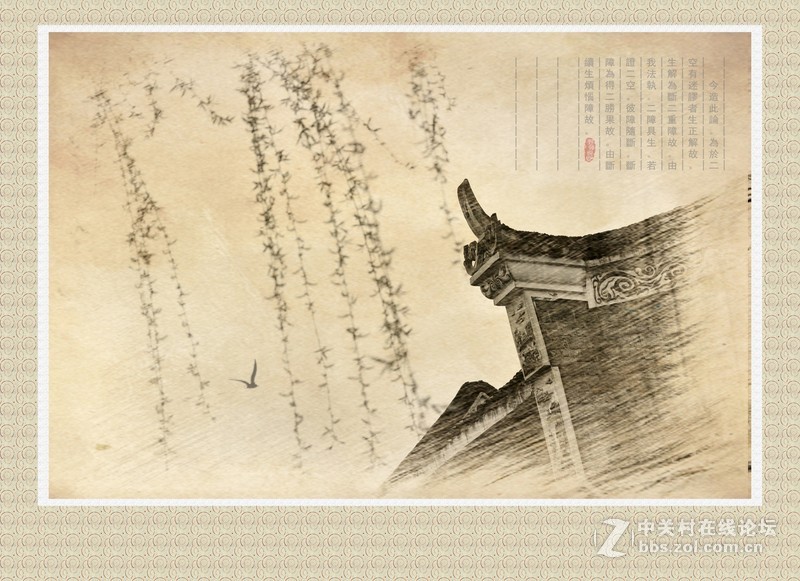 今造此論、為於二
空有迷謬者生正解故、
生解為斷二重障故、由
我法執、二障具生、若
證二空、彼障隨斷、斷
障為得二勝果故、由斷
續生煩惱障故、
Z 中关村在线论坛
bbs.zol.com.cn